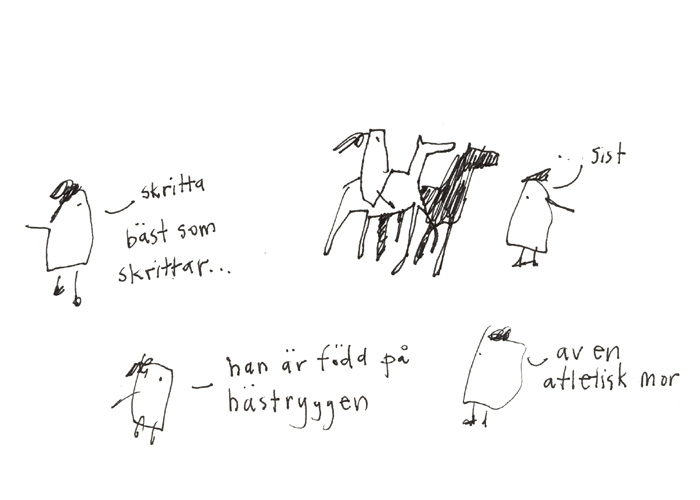 skritta
bäst som
skrittar...
... sist
han är född på
hästryggen
av en
atletisk mor